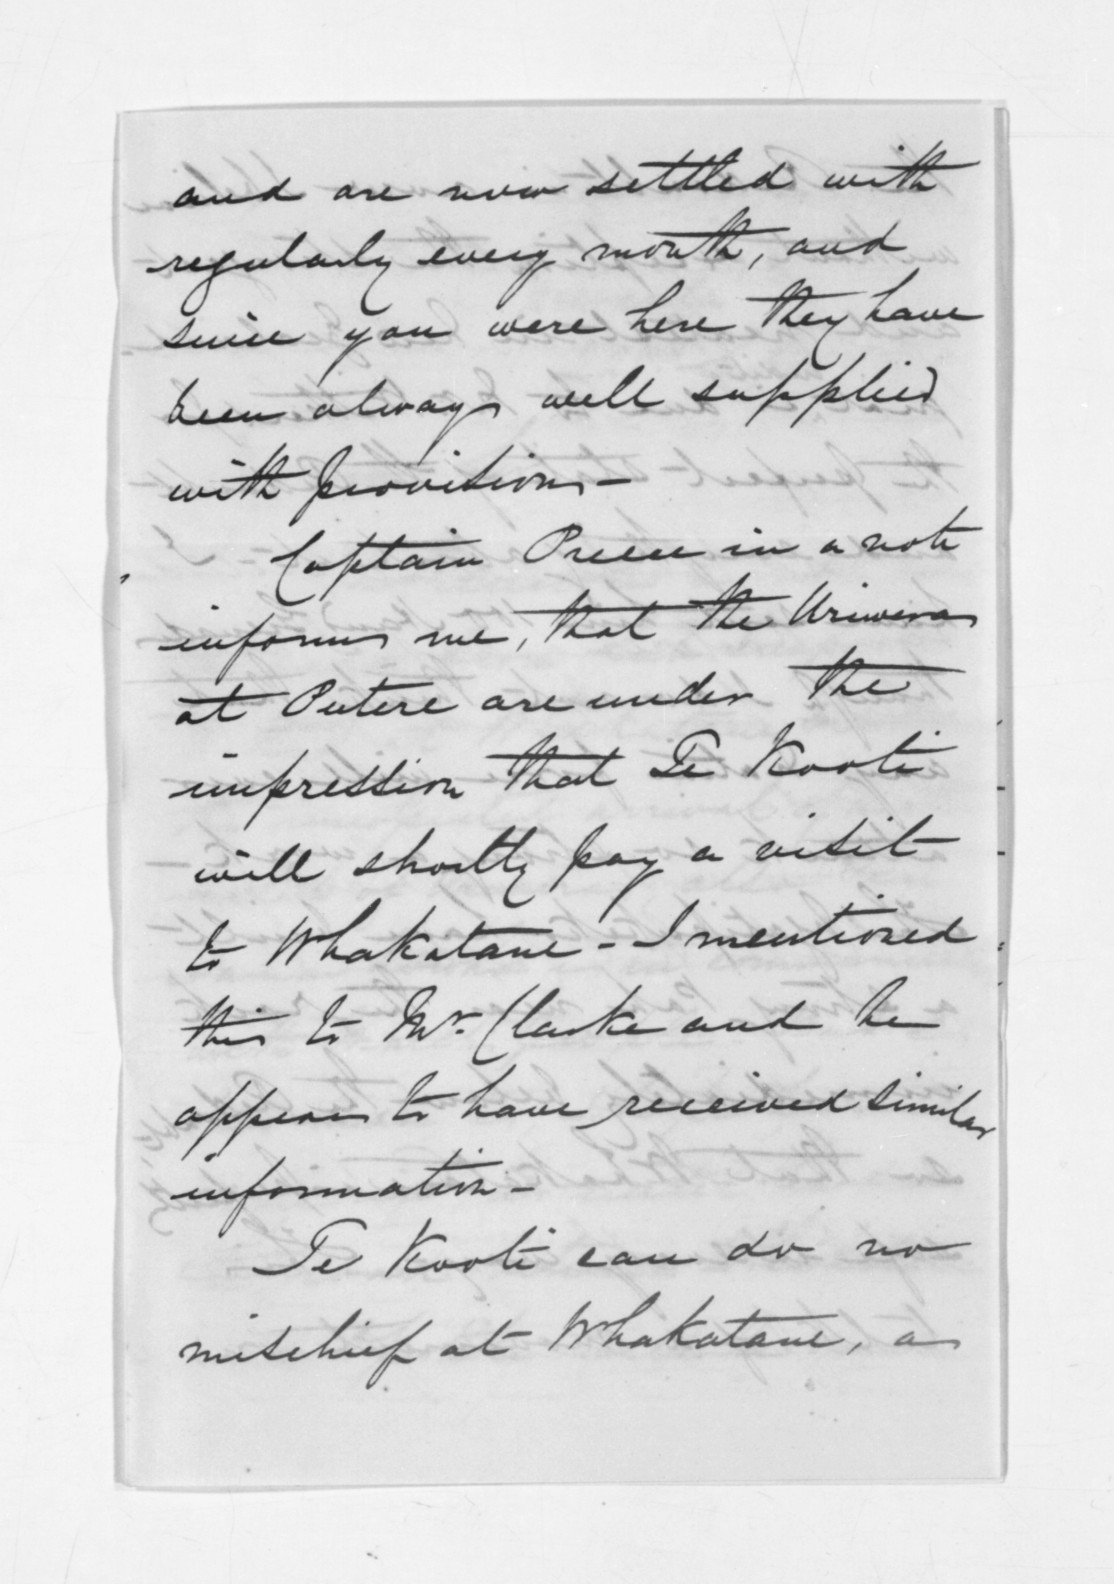 and are now settled with
regularly every month, and
since you were here they have
been always well supplied
with provisions –
Captain Preece in a note
informs me, that the Uriweras
at Putere are under the
impression that Te Kooti
will shortly pay a visit
to Whakatane – I mentioned
this to Mr. Clarke and he
appears to have received similar
information –
Te Kooti can do no
mischief at Whakatane, as